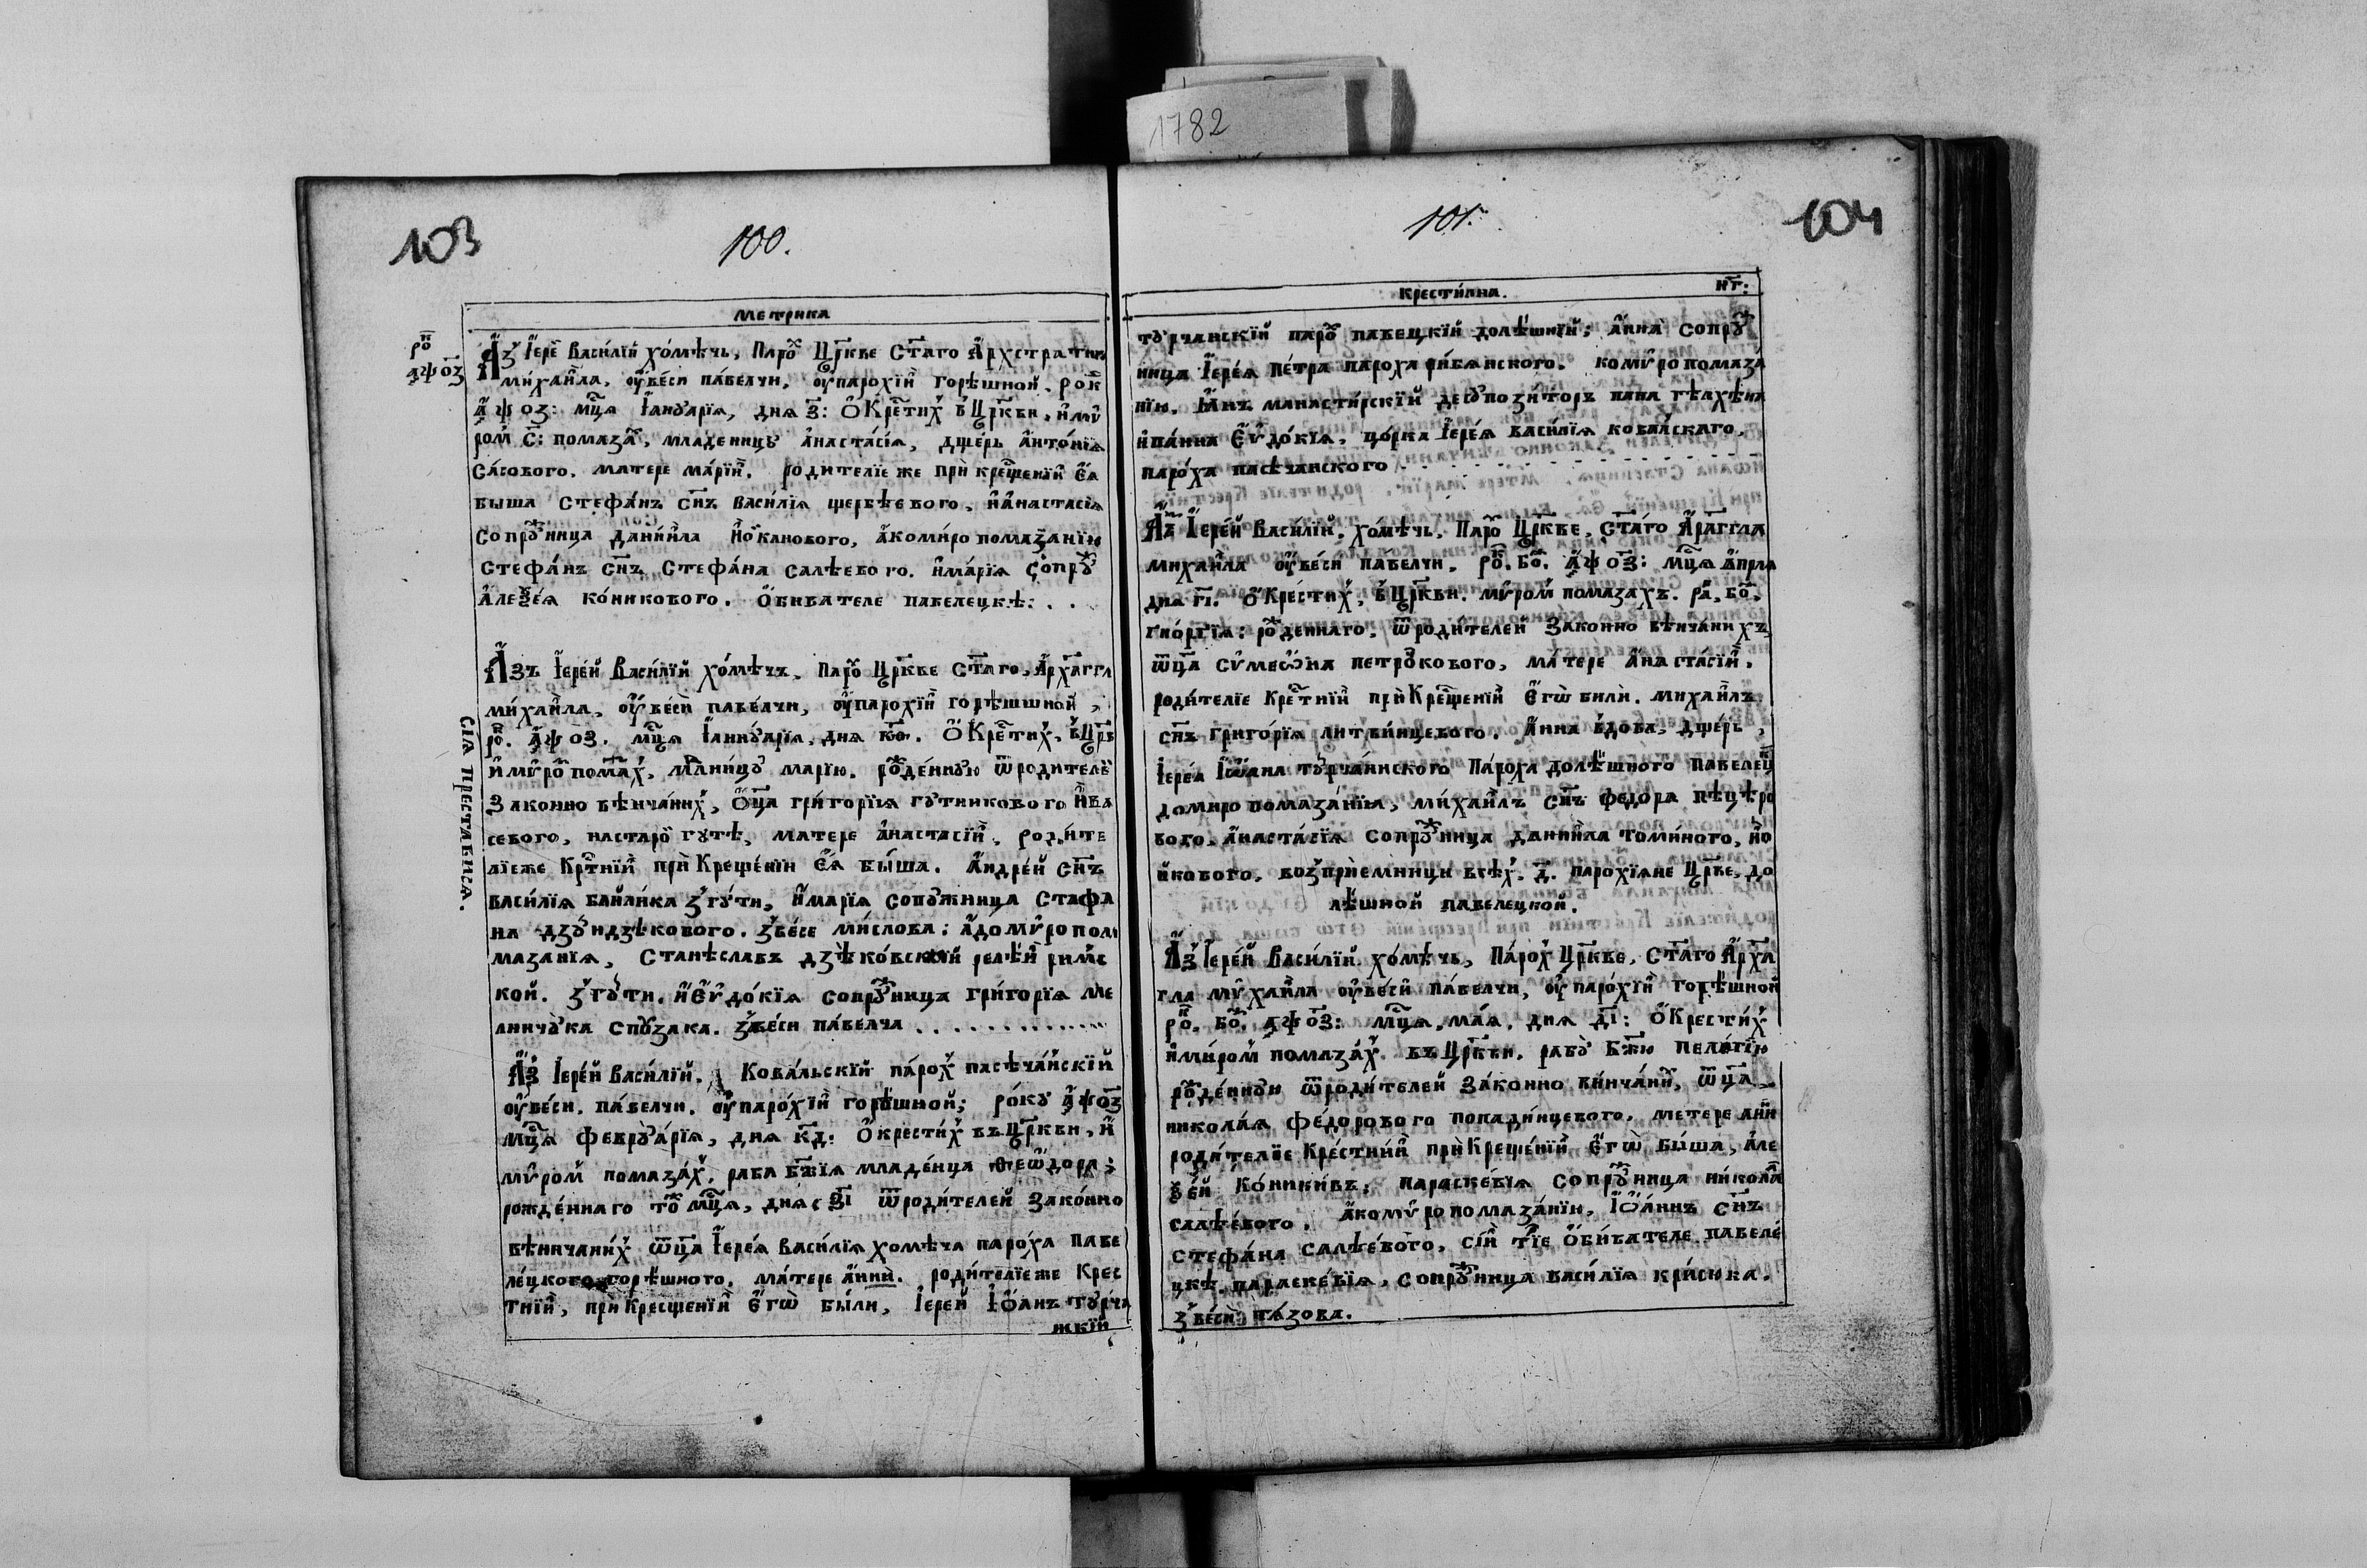 1782
103
100.
Метрика
рок҃
҂аѱоз
Аз Іере Василїй хомѣчъ, Паро Црк҃ве Ст҃аго Архстратига
Михаила, оувеси павелчи, оупарохїи горѣшной, рок
҂аѱоз: мц҃а Іануарїя, дня з҃: Окрестих вЦркви, иму
ром с: помаза, младеницу анастасїя, дщерь антонїя
сасового. матере марїи. родителїе же при крещенїи ея
быша Стефанъ сн҃ъ василїя щербѣевого, ианастасїя
сопружница данїила иоканового, акомиро помазанїю
стефанъ сн҃ъ стефана салѣевого. имарїя сопру
алеѯея коникового. обивателе павелецкѣ: . .
Азъ Іерей Василїй хомѣчъ, паро Црк҃ве ст҃аго, Архаггл
михаила, оувеси павелчи, оупарохїи горѣшшной,
ро. ҂аѱоз. мц҃а Іаннуарїя, дня к҃ѳ. Окретих, вЦрв
имуро помах, млницу марїю. рожденную ѿродителе
законно вѣнчаних, Оц҃а григорїя гутникового ива
севого, настаро гутѣ, матере анастасїи. родите
лїеже Кртнїи при Крещенїи ея быша. андрей сн҃ъ
василїя ванлика згути, имарїя сопужница стафа
на дзундзѣкового. звесе мислова: адомуро пом
мазанїя, станѣславъ дзѣковский релѣи римс
кой. згути. иеудокїя сопружница григорїя ме
линчука спузака. звеси павелча . . . . . . . . . . . .
Сїя престависа.
Аз Іерей Василїй, Ковальскїй парох пасѣчанскїй
оувеси. павелчи. оупарохїи горѣшной; року ҂аѱоз
мц҃а февруарїя, дня к҃д: Окрестих въЦркви, и
муром помазах, раба бж҃їя младенца ѳеѡдора;
рожденнаго то мц҃а, дня з҃і ѿродителей законно
вѣнчаних ѿц҃а Іерея василїя хомѣча пароха паве
лецкого горѣшного, матере анни. родителїеже Крес
тнїи, при Кресщенїи егѡ были, Іерей Іѡанъ турча
жкїй
101.
104
Крестилна.
нг҃:
турчанскїй паро павецкїй долѣшнїй; анна сопру
ница Іерея петра пароха рибянского. комуро помаза
нїю. Іанъ манастирскїй деѵпозиторъ пана гѣлхѣна
ипанна еудокїя, цорка Іерея василїя ковалскаго,
пароха пасѣчанского . . . . . . . . . . . .
Аз Іерей василїй, хомѣчъ, паро Црк҃ве, ст҃аго Арагггла
михаила оувеси павелчи. ро. бо. ҂аѱоз: мц҃а априла
дня г҃і. Окрестих, вЦркви. муром помазахъ. ра. бо.
гиоргїя: рожденнаго, ѿродителей законно вѣнчанихъ
ѿц҃а сумеѡна петрукового, матере анастасїи.
родителїе кретнїи при Крещенїи егѡ били. михаилъ
сн҃ъ григорїя литвинцевого. анна вдова, дщерь,
Іерея Іѡана турчаниского пароха долѣшного павелец
домиро помазанїя, михаилъ сн҃ъ федора пѣцѣро
вого. анастасїя сопружница данїила томиного, ио
йкового, возпрїемници всѣх. д҃. парохїяне Црк҃ве, до
лѣшной павелецкой.
Аз Іерей Василїй хомѣчъ, парох Црк҃ве, ст҃аго Арха
гла мухаила оувеси павелчи, оупарохїи горѣшной
ро. бо. ҂аѱоз: мц҃а, мая, дня д҃і: Окрестих
имиром помазах въЦркви, рабу Бж҃ю пелагїю
рожденную ѿродителей законно винчани, ѿц҃а
николая федорового попадинцевого, метере анни
родителїе Крестнии при Крещенїи егѡ быша, але
ѯей коникивъ; параскевїя сопружница никола
салѣевого. акомуро помазанїю, Іѡаннъ сн҃ъ
стефана салѣевого, сїи тїе обивателе павеле
цкѣ, параскевїя, сопружница василїя крисюка.
звеси пазова.